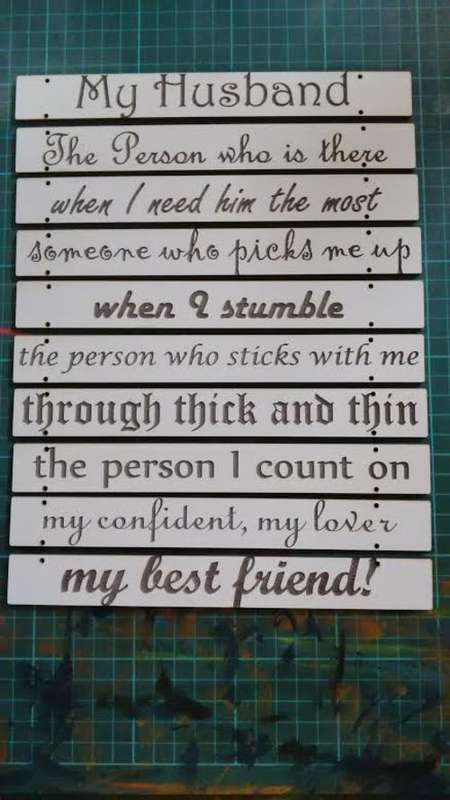 My Husband
The Person who is there
when I need him the most
someone who picks me up
when I stumble
the person who sticks with me
through thick and thin
the person I count on
my confident, my lover
my best friend!